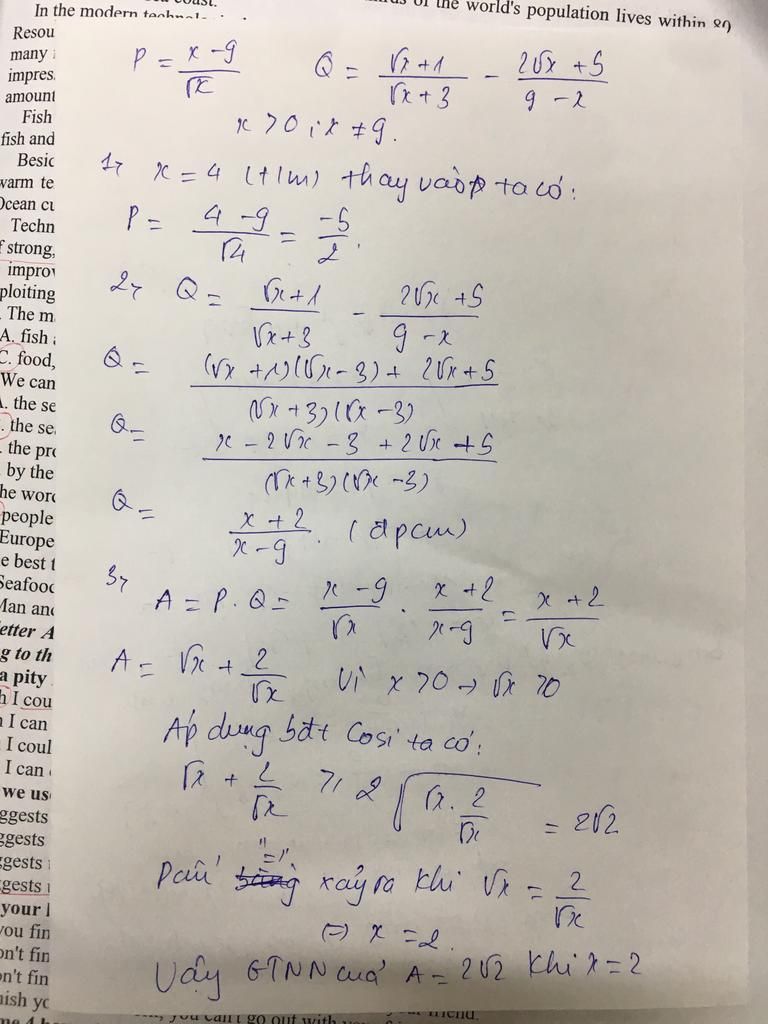 In the modern
of the world's population lives within 80
Resou
many
impres
amount
Fish
fish and
Besic
warm te
Ocean cu
Techn
f strong,
improv
ploiting
. The m
A. fish
C. food,
We can
. the se
. the se
. the pro
by the
he word
people
Europe
e best t
Seafood
Man and
etter A
g to th
a pity
h I cou
n I can
I coul
I can
we us
ggests
ggests
ggests
gests
your l
you fin
on't fin
on't fin
nish yo
P = \frac{x - 9}{\sqrt{x}} Q = \frac{\sqrt{x} + 1}{\sqrt{x} + 3} - \frac{2\sqrt{x} + 5}{9 - x}
x > 0 ; x ≠ 9.
1, x = 4 (t/m) thay vào P ta có:
P = \frac{4 - 9}{\sqrt{4}} = \frac{-5}{2}.
2, Q = \frac{\sqrt{x} + 1}{\sqrt{x} + 3} - \frac{2\sqrt{x} + 5}{9 - x}
Q = \frac{(\sqrt{x} + 1)(\sqrt{x} - 3) + 2\sqrt{x} + 5}{(\sqrt{x} + 3)(\sqrt{x} - 3)}
Q = \frac{x - 2\sqrt{x} - 3 + 2\sqrt{x} + 5}{(\sqrt{x} + 3)(\sqrt{x} - 3)}
Q = \frac{x + 2}{x - 9}. (đpcm)
3, A = P . Q = \frac{x - 9}{\sqrt{x}} . \frac{x + 2}{x - 9} = \frac{x + 2}{\sqrt{x}}
A = \sqrt{x} + \frac{2}{\sqrt{x}} Vì x > 0 → \sqrt{x} > 0
Áp dụng bđt Cosi ta có:
\sqrt{x} + \frac{2}{\sqrt{x}} ≥ 2\sqrt{\sqrt{x} . \frac{2}{\sqrt{x}}} = 2\sqrt{2}
Dấu "=" xảy ra khi \sqrt{x} = \frac{2}{\sqrt{x}}
⇔ x = 2.
Vậy GTNN của A = 2\sqrt{2} khi x = 2
you can't go out with
friend.